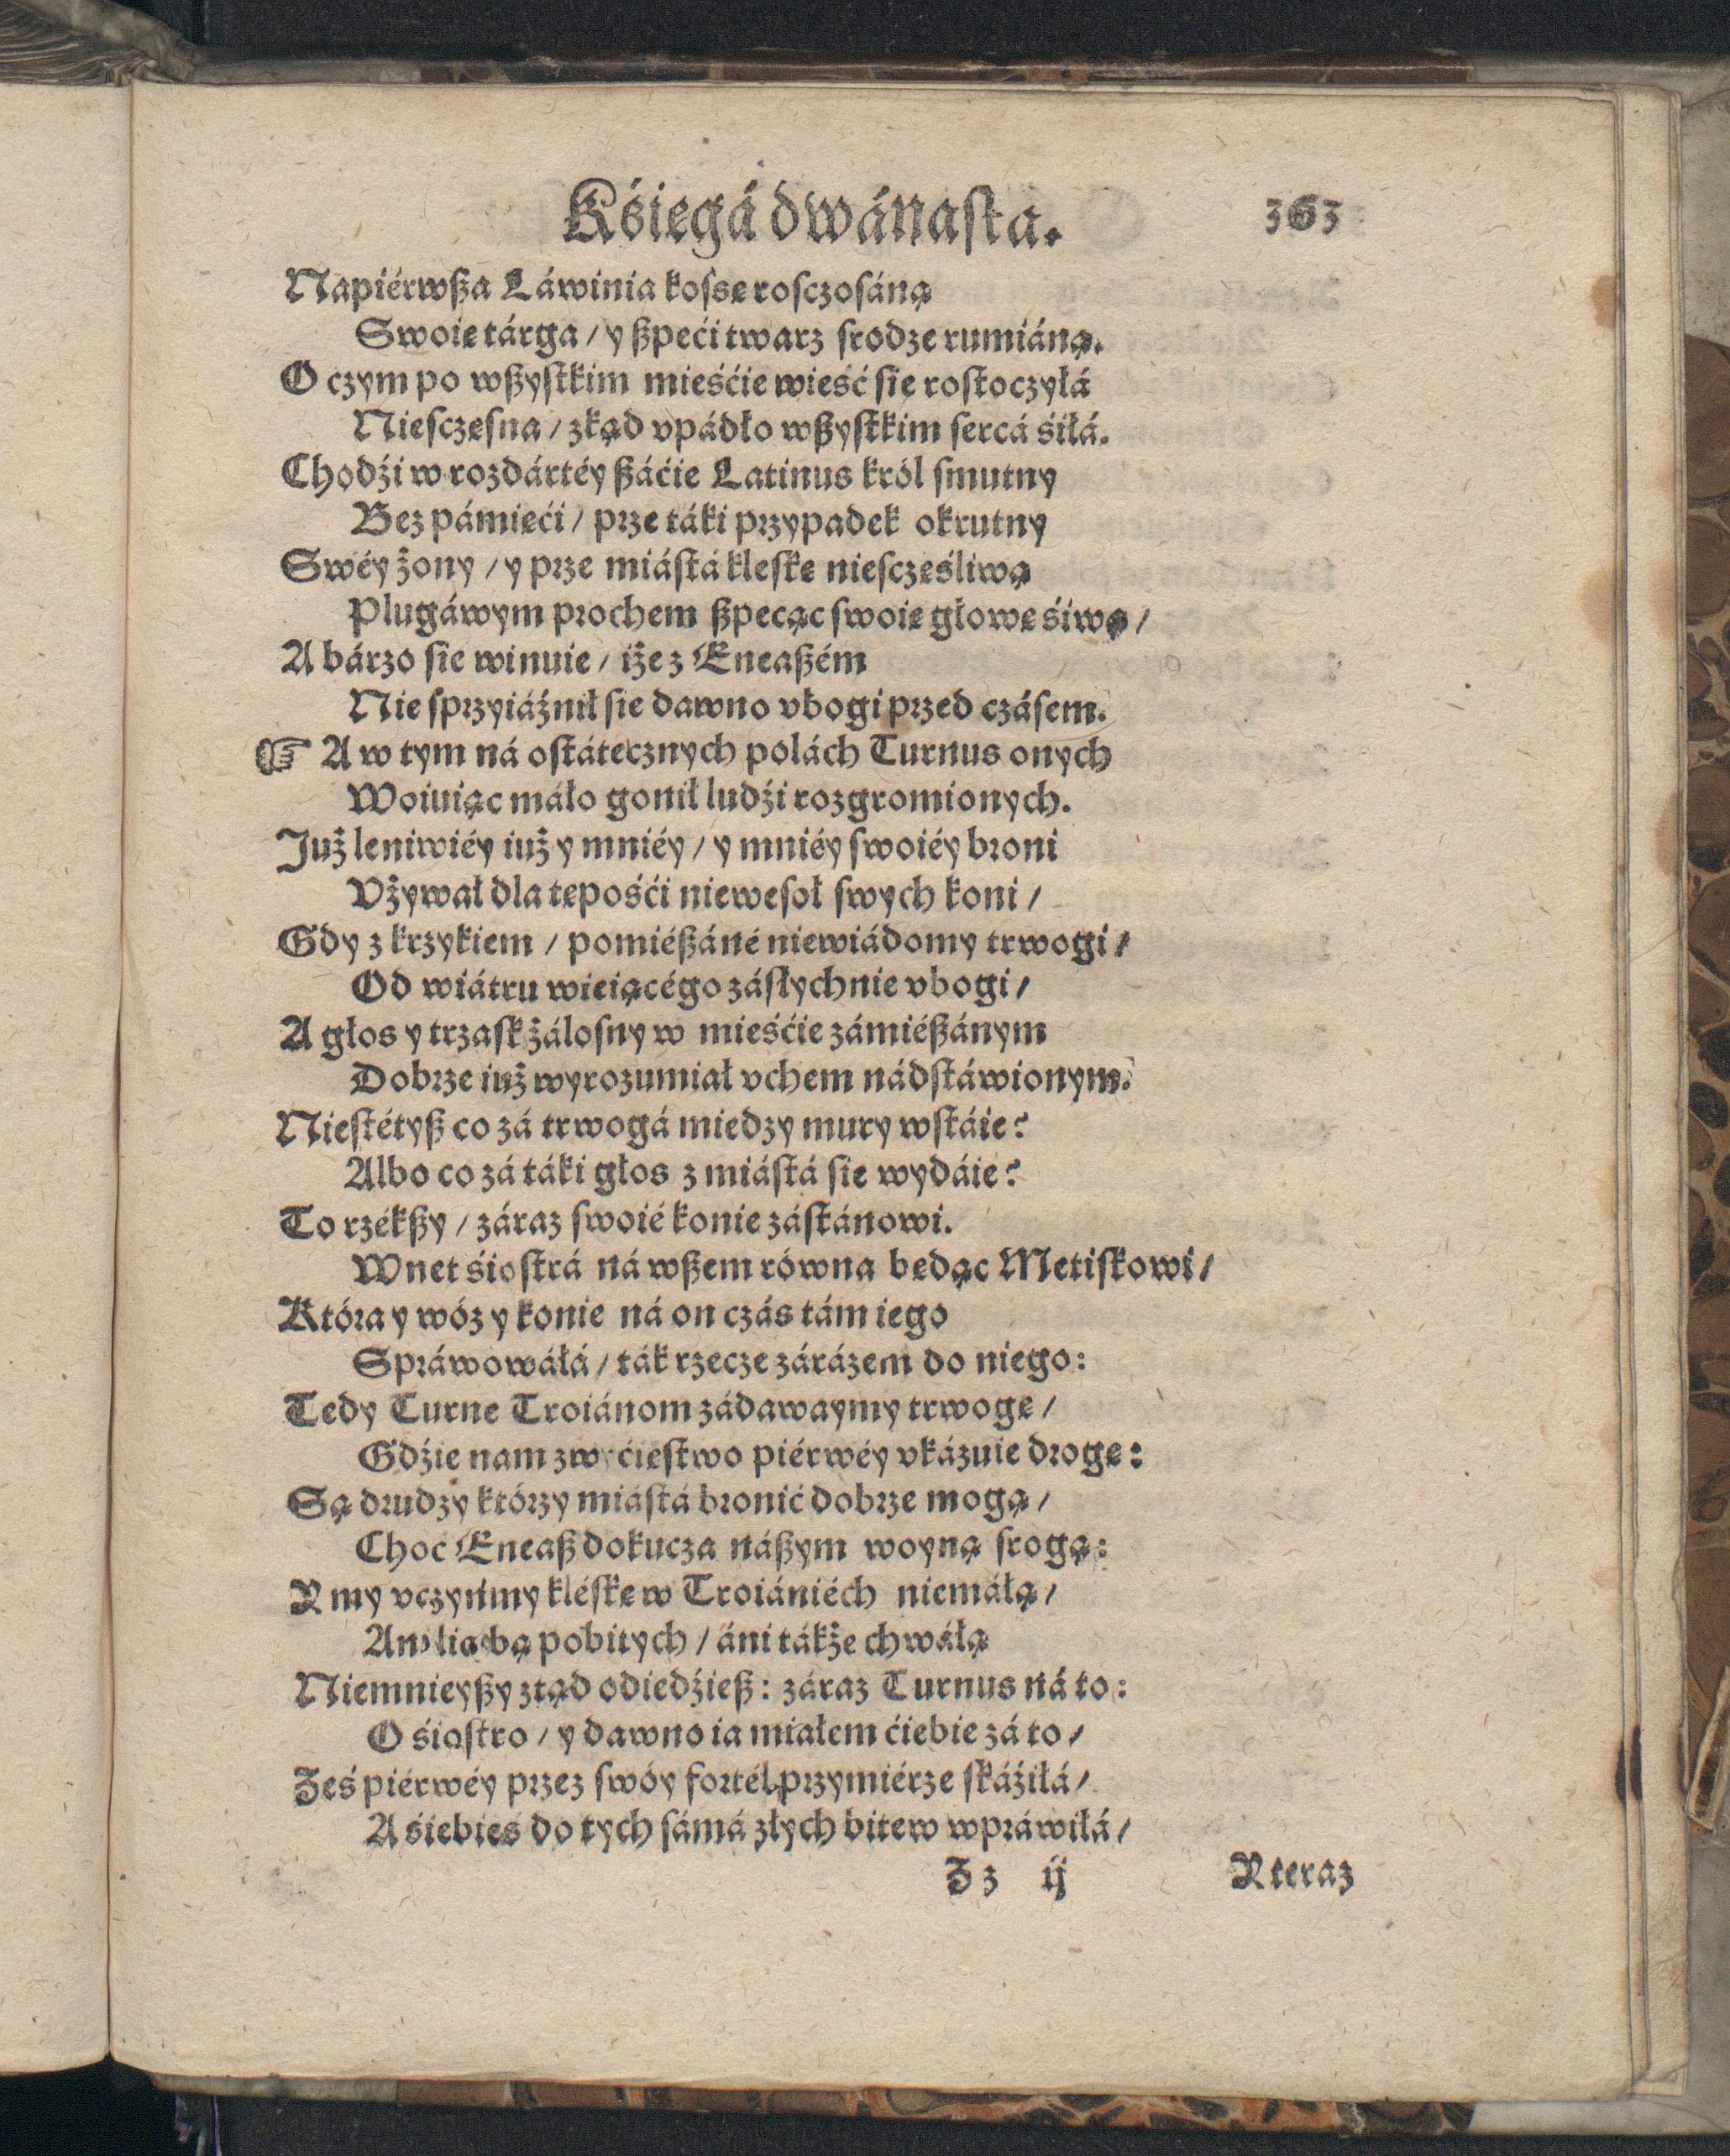 Kśięgá dwánasta. 363
Napiérwßa Láwinia kosse rosczosáną
Swoię tárga / y ßpeći twarz srodze rumiáną.
O czym po wßystkim mieśćie wieść się rostoczyłá
Niesczęsna / zkąd vpádło wßystkim sercá śiłá.
Chodźi w rozdártéy ßáćie Latinus król smutny
Bez pámięći / prze táki przypadek okrutny
Swéy żony / y prze miástá klęskę niesczęśliwą
Plugáwym prochem ßpecąc swoię głowę śiwą /
A bárzo się winuie / iże z Eneaßém
Nie sprzyiáźnił się dawno vbogi przed czásem.
☞ A w tym ná ostátecznych polách Turnus onych
Woiuiąc máło gonił ludźi rozgromionych.
Już leniwiéy iuż y mniéy / y mniéy swoiéy broni
Vżywał dla tępośći niewesoł swych koni /
Gdy z krzykiem / pomiéßáné niewiádomy trwogi /
Od wiátru wieiącégo zásłychnie vbogi /
A głos y trzask żálosny w mieśćie zámiéßánym
Dobrze iuż wyrozumiał vchem nádstáwionym.
Niestétyß co zá trwogá miedzy mury wstáie?
Albo co zá táki głos z miástá się wydáie?
To rzékßy / záraz swoié konie zástánowi.
Wnet śiostrá ná wßem równa będąc Metiskowi /
Która y wóz y konie ná on czás tám iego
Spráwowáłá / ták rzecze zárázem do niego:
Tędy Turne Troiánom zádawaymy trwogę /
Gdźie nam zwyćięstwo piérwéy vkázuie drogę:
Są drudzy którzy miástá bronić dobrze mogą /
Choc Eneaß dokucza náßym woyną srogą:
Y my vczyńmy kléskę w Troiániéch niemáłą /
Ani liczbą pobitych / áni tákże chwáłą
Niemnieyßy ztąd odiedźieß: záraz Turnus ná to:
O śiostro / y dawno ia miałem ćiebie zá to /
Żeś piérwéy przez swóy fortél przymiérze skáźiłá /
A śiebieś do tych sámá złych bitew wpráwiłá /
Zz ij Y teraz